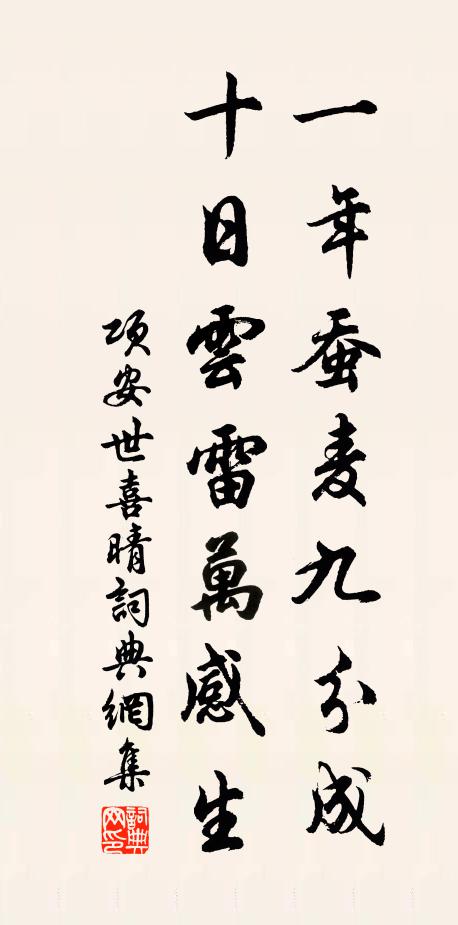 一年蚕麦九分成
十日雲雷萬感生
項安世喜晴詞典網集
詞典網印